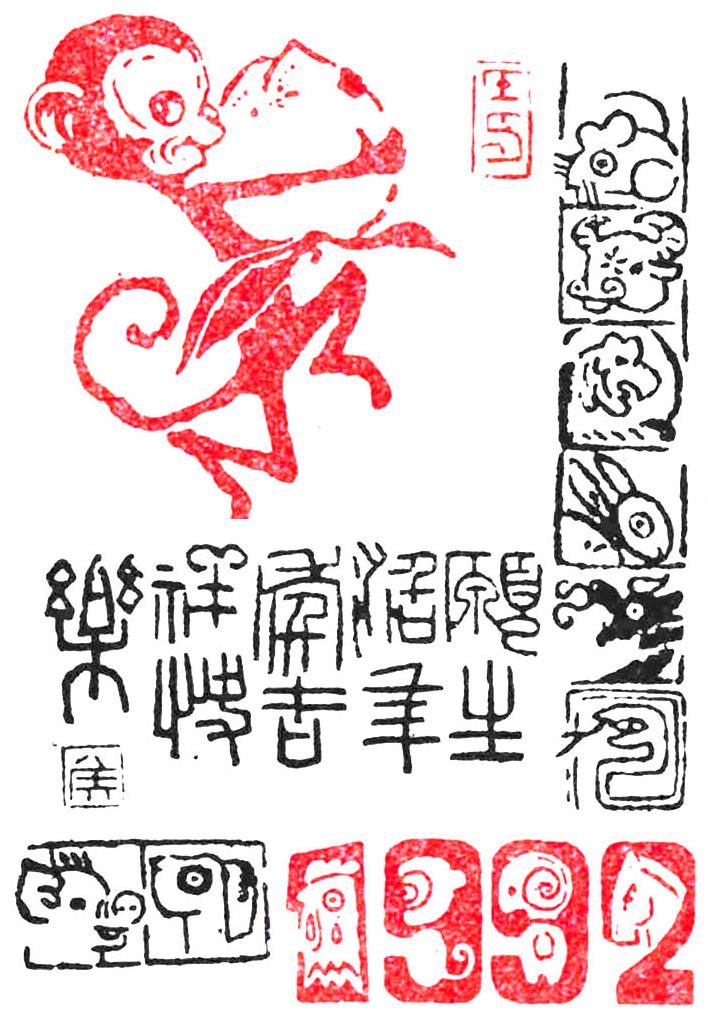 願生
活年
康吉
祥快
樂
1992